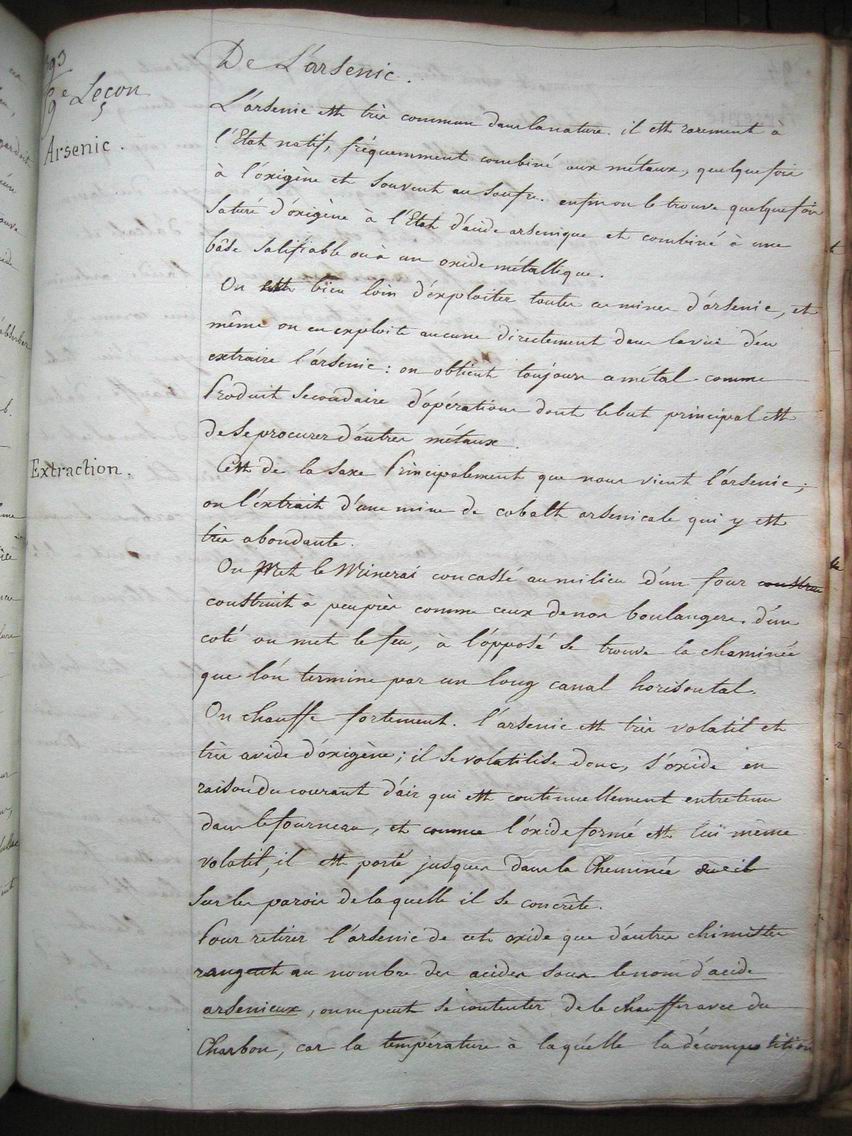 De L'arsenic.
9e Leçon
Arsenic.
L'arsenic est très commun dans la nature. il est rarement à
l'Etat natif, fréquemment combiné aux métaux, quelque fois
à l'oxigène et souvent au soufre. enfin on le trouve quelque fois
saturé d'oxigène à l'Etat d'acide arsenique et combiné à une
bâse salifiable ou à un oxide métallique.
On est bien loin d'exploiter toutes ces mines d'arsenic, et
même on en exploite aucune directement dans la vüe d'en
extraire l'arsenic : on obtient toujours ce métal comme
Produit secondaire d'opérations dont le but principal est
de se procurer d'autres métaux.
Extraction.
C'est de la saxe Principalement que nous vient l'arsenic ;
on l'extrait d'une mine de cobalt arsenicale qui y est
très abondante.
On Met le Minerai concassé au milieu d'un four
construit à peu près comme ceux de nos boulangers. d'un
coté on met le feu, à l'opposé se trouve la cheminée
que l'on termine par un long canal horisontal.
On chauffe fortement. l'arsenic est très volatil et
très avide d'oxigène ; il se volatilise donc, s'oxide en
raison du courant d'air qui est continuellement entretenu
dans le fourneau, et comme l'oxide formé est lui même
volatil, il est porté jusques dans la Cheminée
sur les parois de laquelle il se concrête.
Pour retirer l'arsenic de cet oxide que d'autres chimistes
rangent au nombre des acides sous le nom d'acide
arsenieux, on ne peut se contenter de le chauffer avec du
Charbon, car la température à laquelle la décomposition